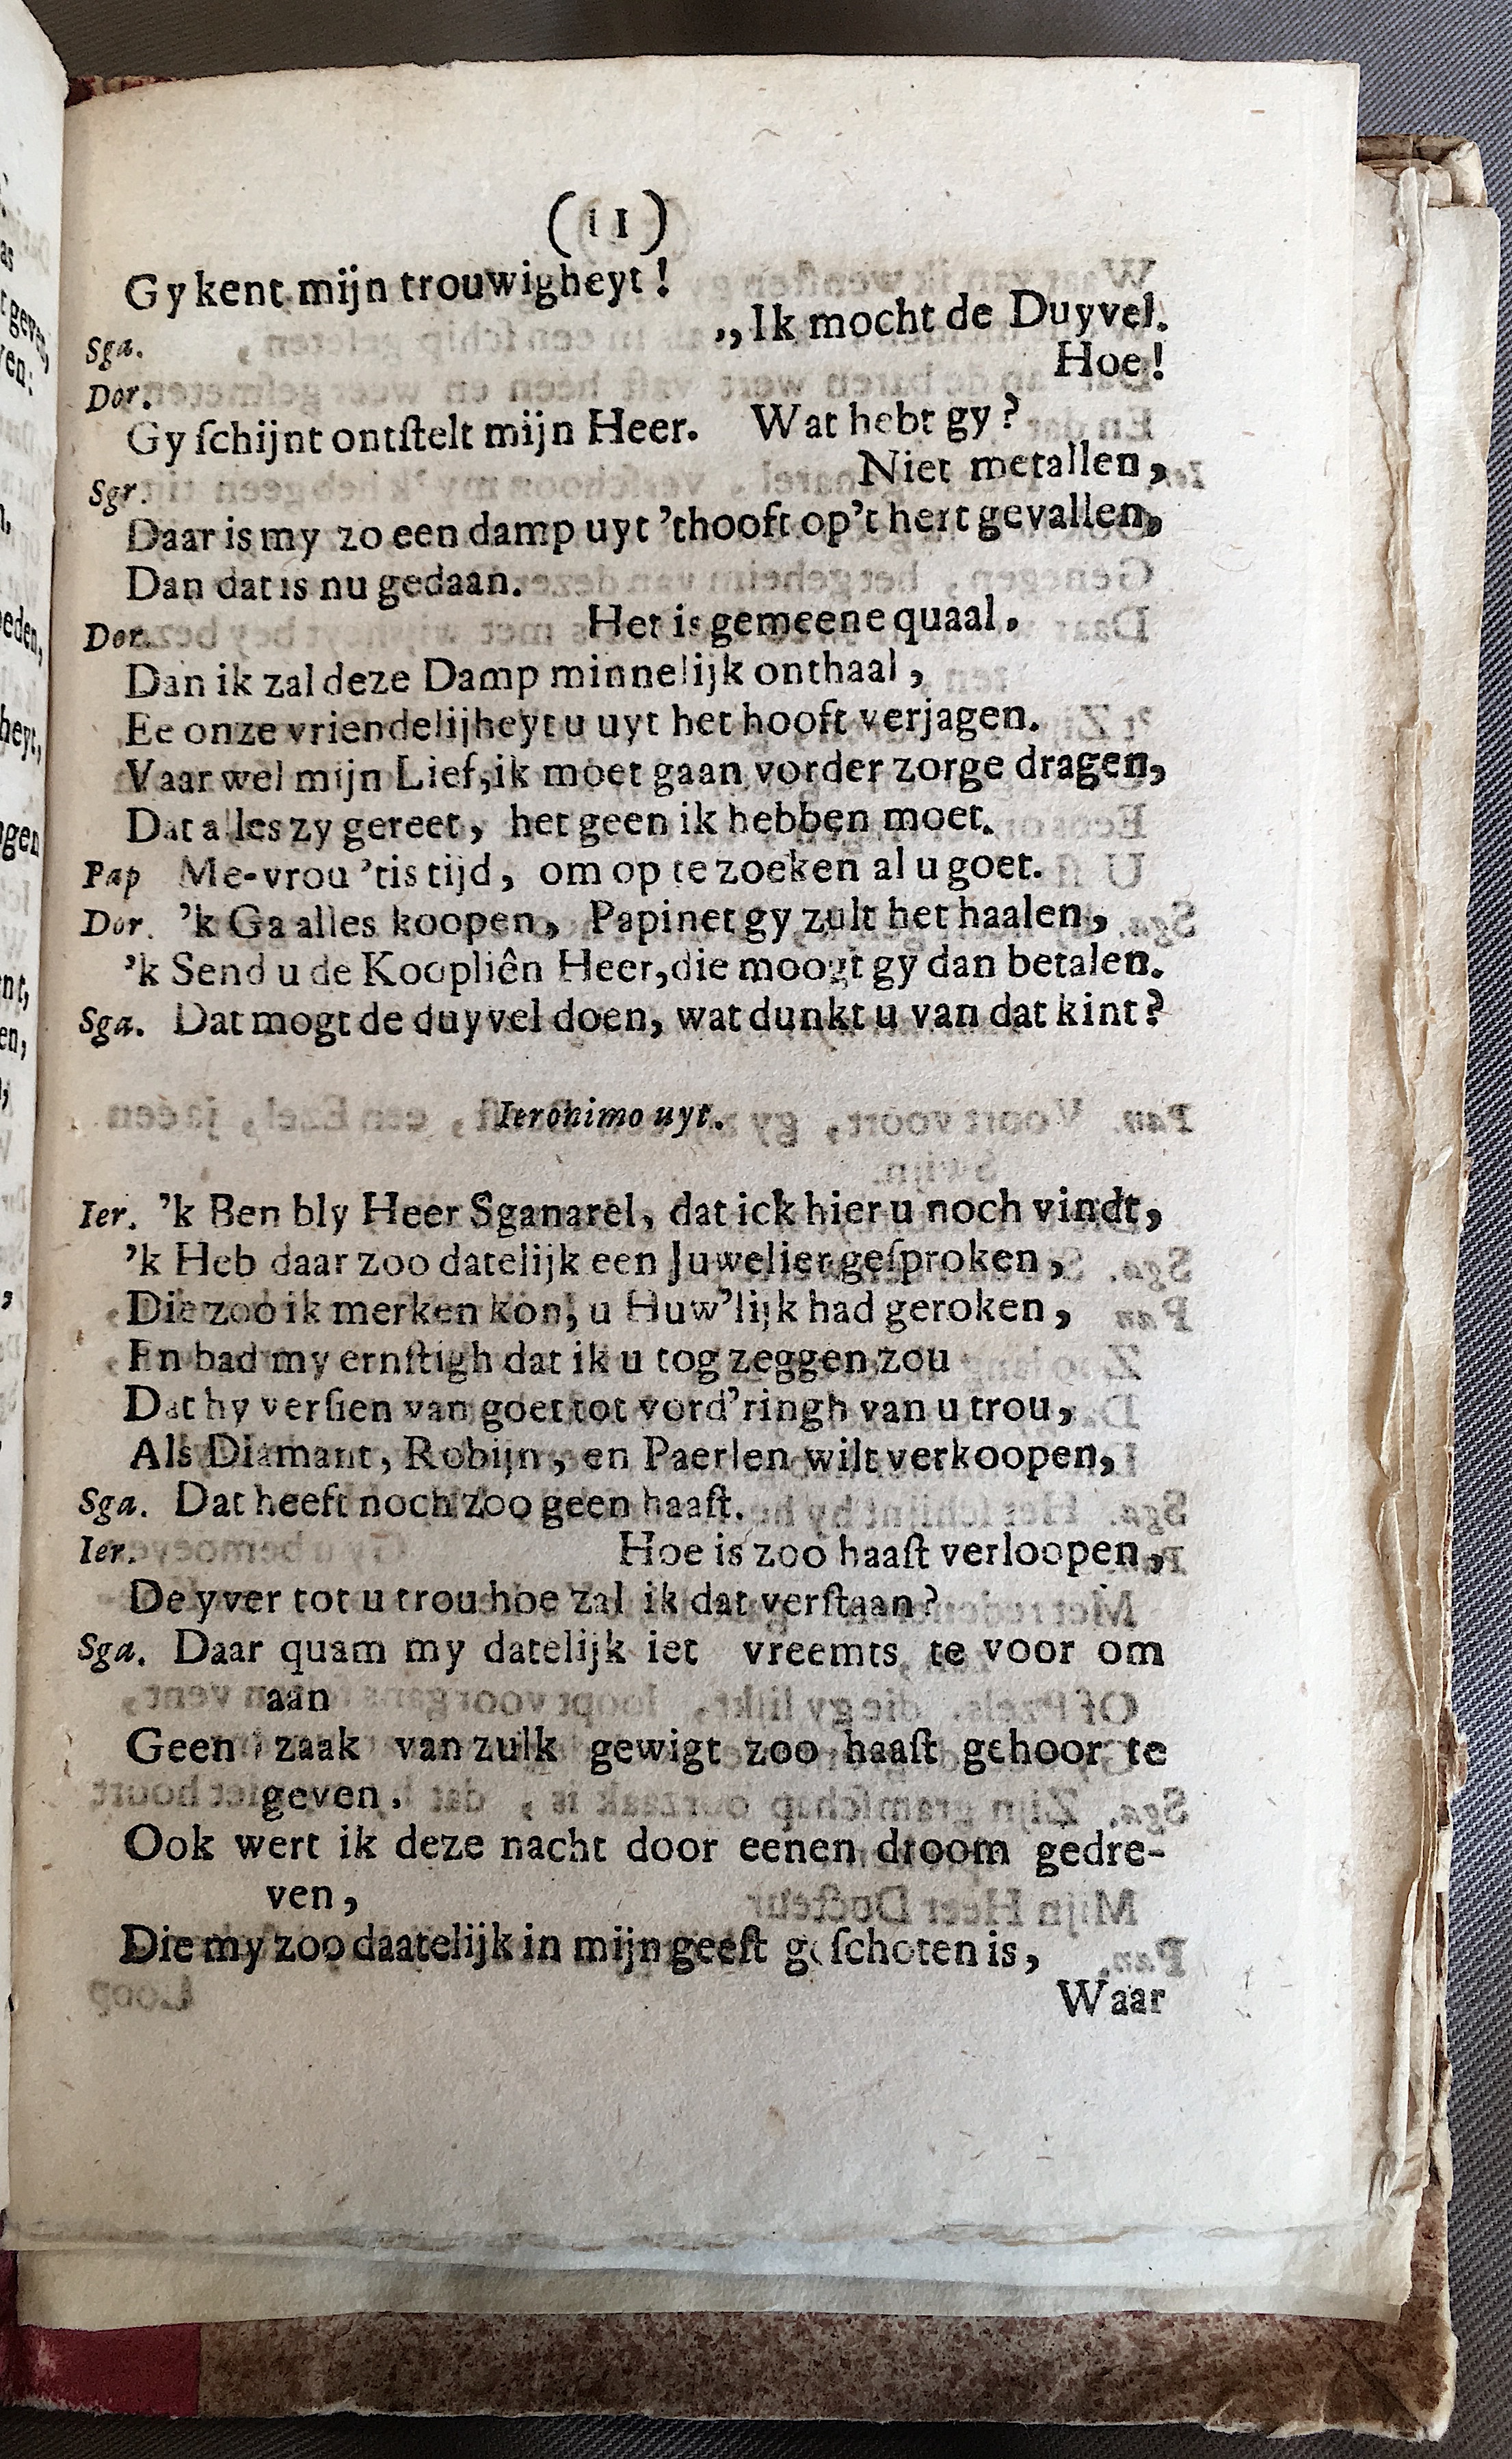 (11)
Gy kent mijn trouwigheyt!
Sga. „Ik mocht de Duyvel.
Dor. Hoe!
Gy ſchijnt ontſtelt mijn Heer. Wat hebt gy?
Sgr. Niet metallen,
Daar is my zo een damp uyt 'thooft op't hert gevallen,
Dan dat is nu gedaan.
Dor. Het is gemeene quaal.
Dan ik zal deze Damp minnelijk onthaal,
Ee onze vriendelijheyt u uyt het hooft verjagen.
Vaar wel mijn Lief, ik moet gaan vorder zorge dragen,
Dat alles zy gereet, het geen ik hebben moet.
Pap Me-vrou 'tis tijd, om op te zoeken al u goet.
Dor. 'k Ga alles koopen, Papinet gy zult het haalen,
'k Send u de Koopliên Heer, die moogt gy dan betalen.
Sga. Dat mogt de duyvel doen, wat dunkt u van dat kint?
Ieronimo uyt.
Ier. 'k Ben bly Heer Sganarel, dat ick hier u noch vindt,
'k Heb daar zoo datelijk een Juwelier geſproken,
Die zoo ik merken kon, u Huw'lijk had geroken,
En bad my ernſtigh dat ik u tog zeggen zou
Dat hy verſien van goet tot vord'ringh van u trou,
Als Diamant, Robijn, en Paerlen wilt verkoopen,
Sga. Dat heeft noch zoo geen haaſt.
Ier. Hoe is zoo haaſt verloopen,
De yver tot u trou hoe zal ik dat verſtaan?
Sga. Daar quam my datelijk iet vreemts te voor om
aan
Geen zaak van zulk gewigt zoo haaſt gehoor te
geven.
Ook wert ik deze nacht door eenen droom gedre-
ven,
Die my zoo daatelijk in mijn geeſt geſchoten is,
Waar